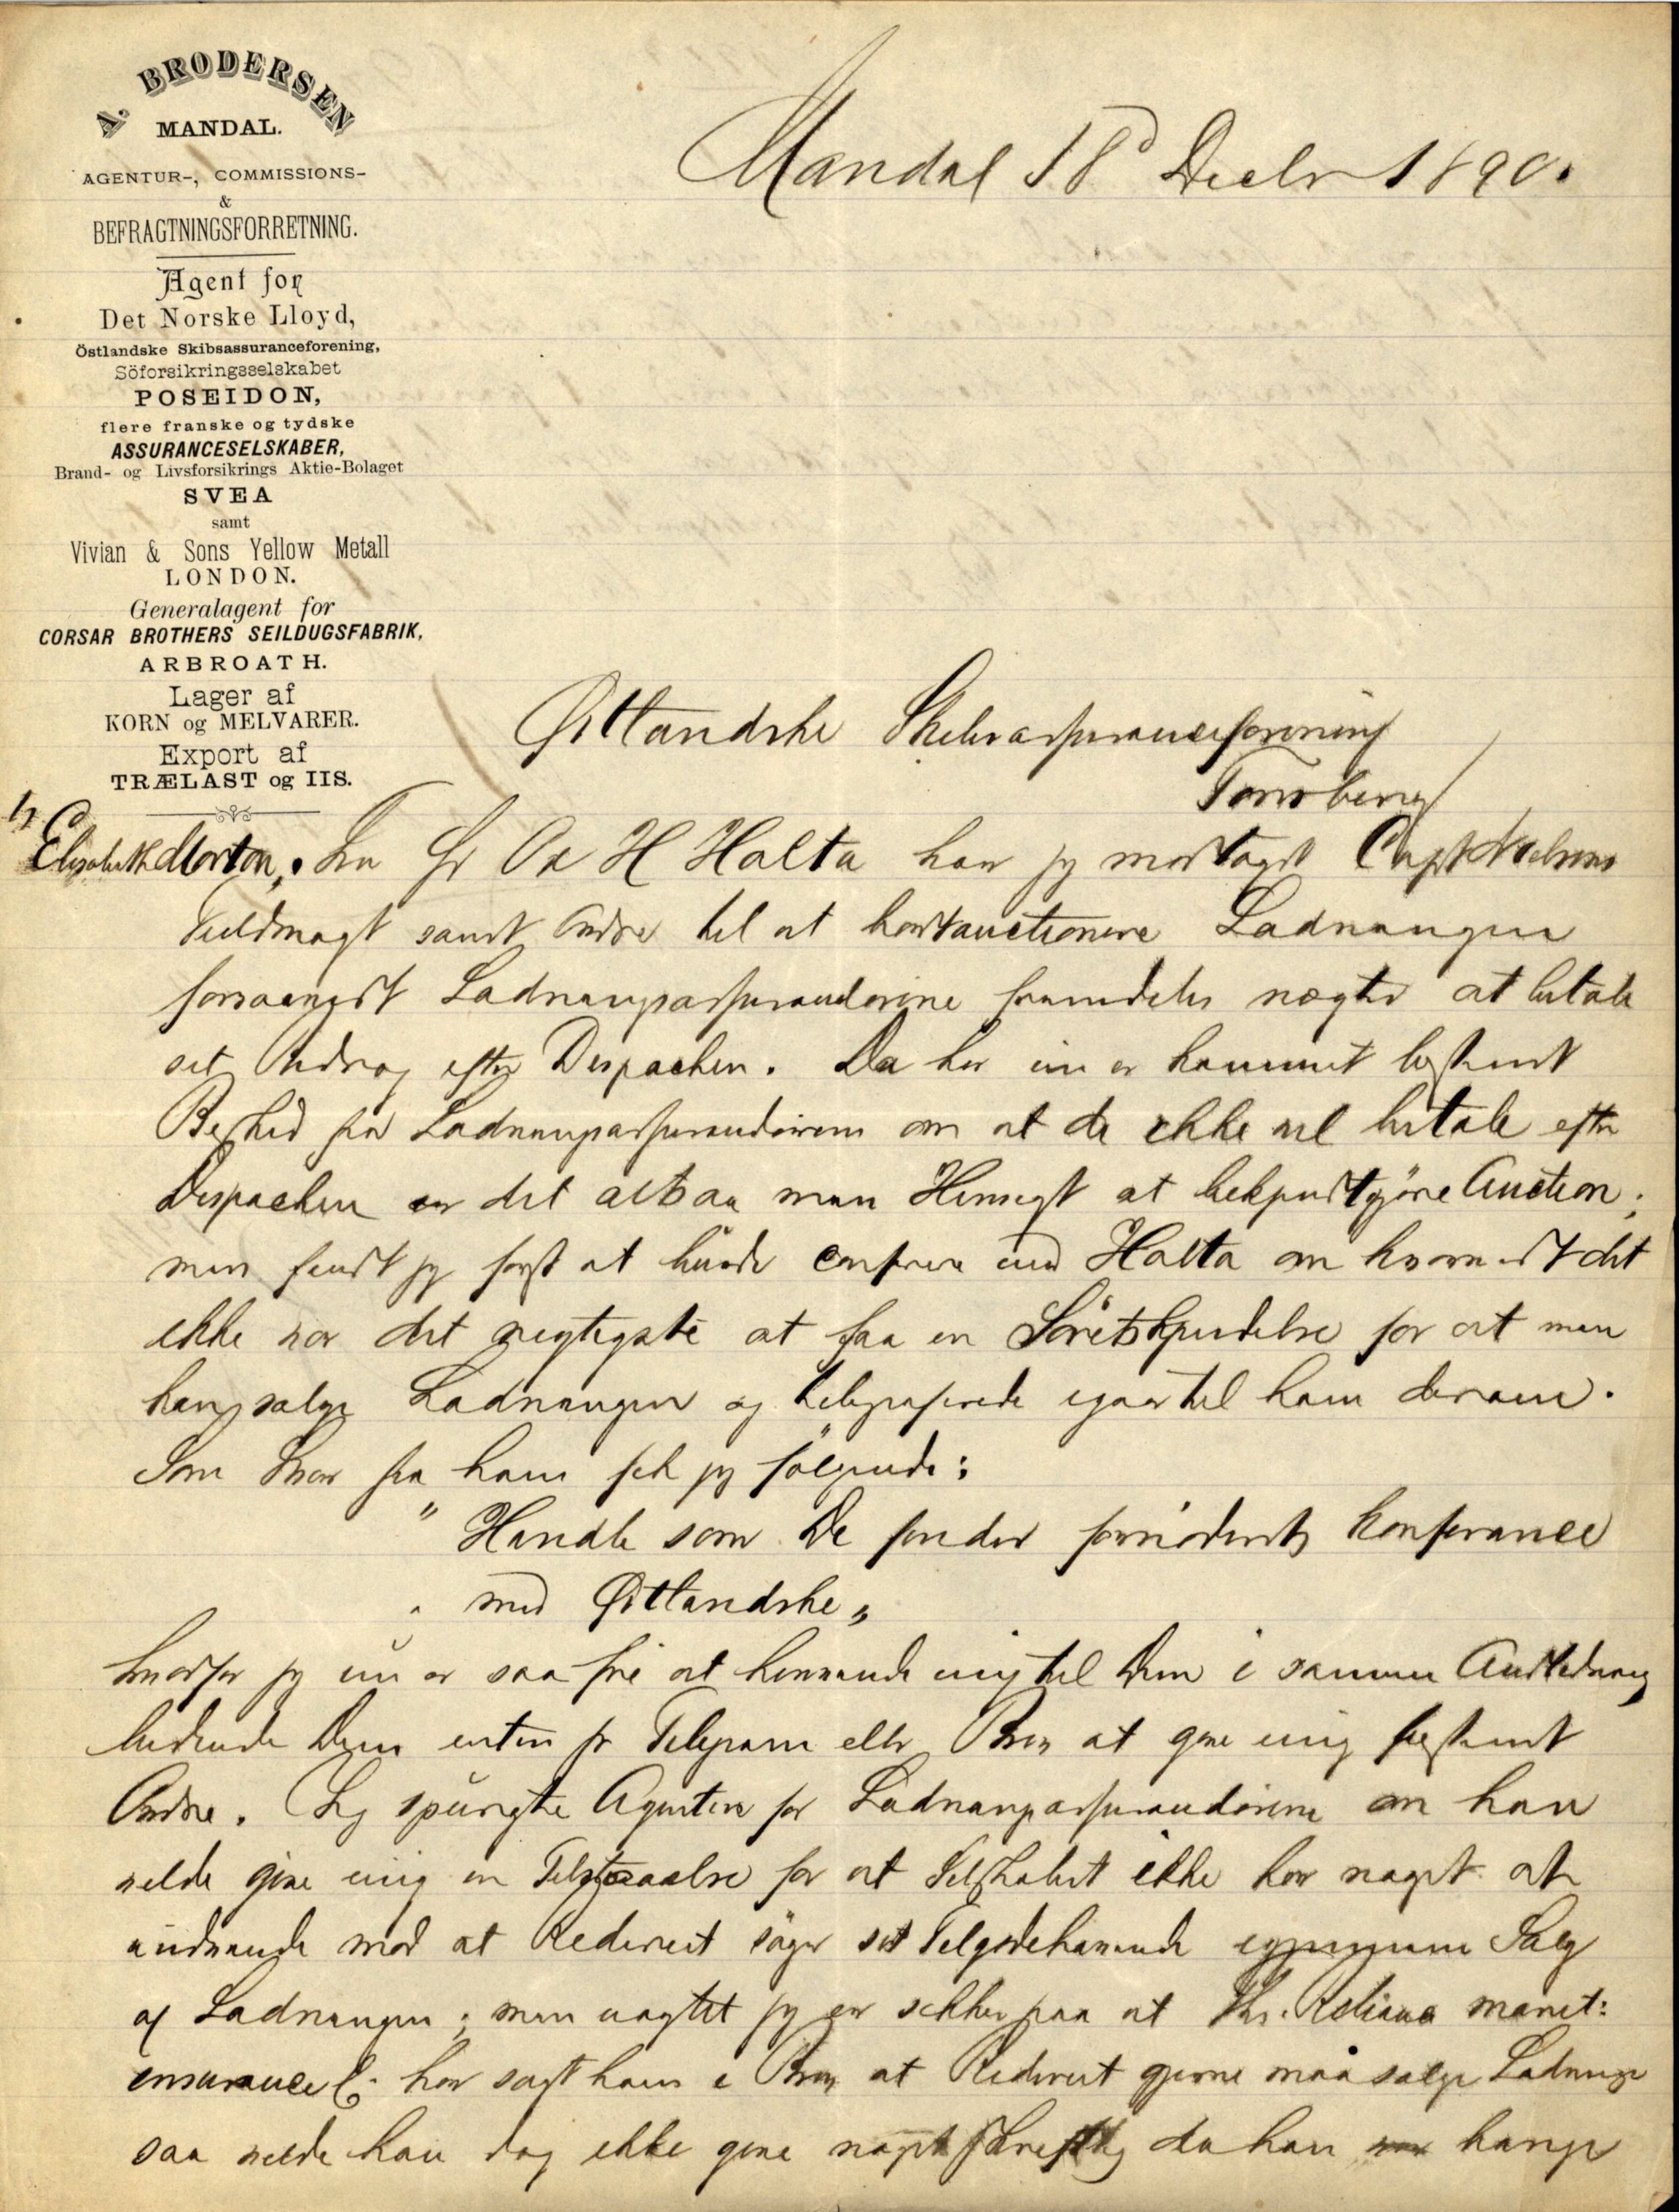 A. BRODERSEN
MANDAL.
AGENTUR-, COMMISSIONS-
&
BEFRAGTNINGSFORRETNING.
Agent for
Det Norske Lloyd,
Östlandske Skibsassuranceforening,
Söforsikringsselskabet
POSEIDON,
flere franske og tydske
ASSURANCESELSKABER,
Brand- og Livsforsikrings Aktie-Bolaget
SVEA
samt
Vivian & Sons Yellow Metall
LONDON.
Generalagent for
CORSAR BROTHERS SEILDUGSFABRIK,
ARBROATH.
Lager af
KORN og MELVARER.
Export af
TRÆLAST og IIS.
Mandal 18d Decbr 1890.
Østlandske Skibsassuranceforening
Tønsberg
Elisabeth Morton. Fra Hr O H Holta har jeg modtaget Capt Nielsens
Fuldmagt samt Ordre til at bortauctionere Ladningen
forsaavidt Ladningsassurandörerne fremdeles nægter at betale
sit Bidrag efter Dispachen. Da her nu er kommet bestemt
Besked fra Ladningsassurandörerne om at de ikke vil betale efter
Dispachen er det altsaa min Hensigt at bekjendtgjöre Auction;
men fandt jeg först at burde conferere med Holta om hvorvidt det
ikke var det rigtigste at faa en Söretskjendelse for at man
kan sælge Ladningen og telegraferede igaar til ham derom.
Som Svar fra ham fik jeg fölgende:
" Handle som De finder fornödent konferance
" med Østlandske "
hvorfor jeg nu er saa fri at henvende mig til Dem i samme Anledning
bedende Dem enten pr Telegram eller Brev at give mig bestemt
Ordre. Jeg spurgte Agenten for Ladningsassurandörerne om han
vilde give mig en Tilstaaelse for at Selskabet ikke har noget at
indvende mod at Rederiet söger sit Tilgodehavende igjennem Salg
af Ladningen; men uagtet jeg er sikker paa at The Reliance marit:
insurance Co har sagt ham i Brev at Rederiet gjerne maa sælge Ladningen
saa vilde han dog ikke give noget skriftlig da han